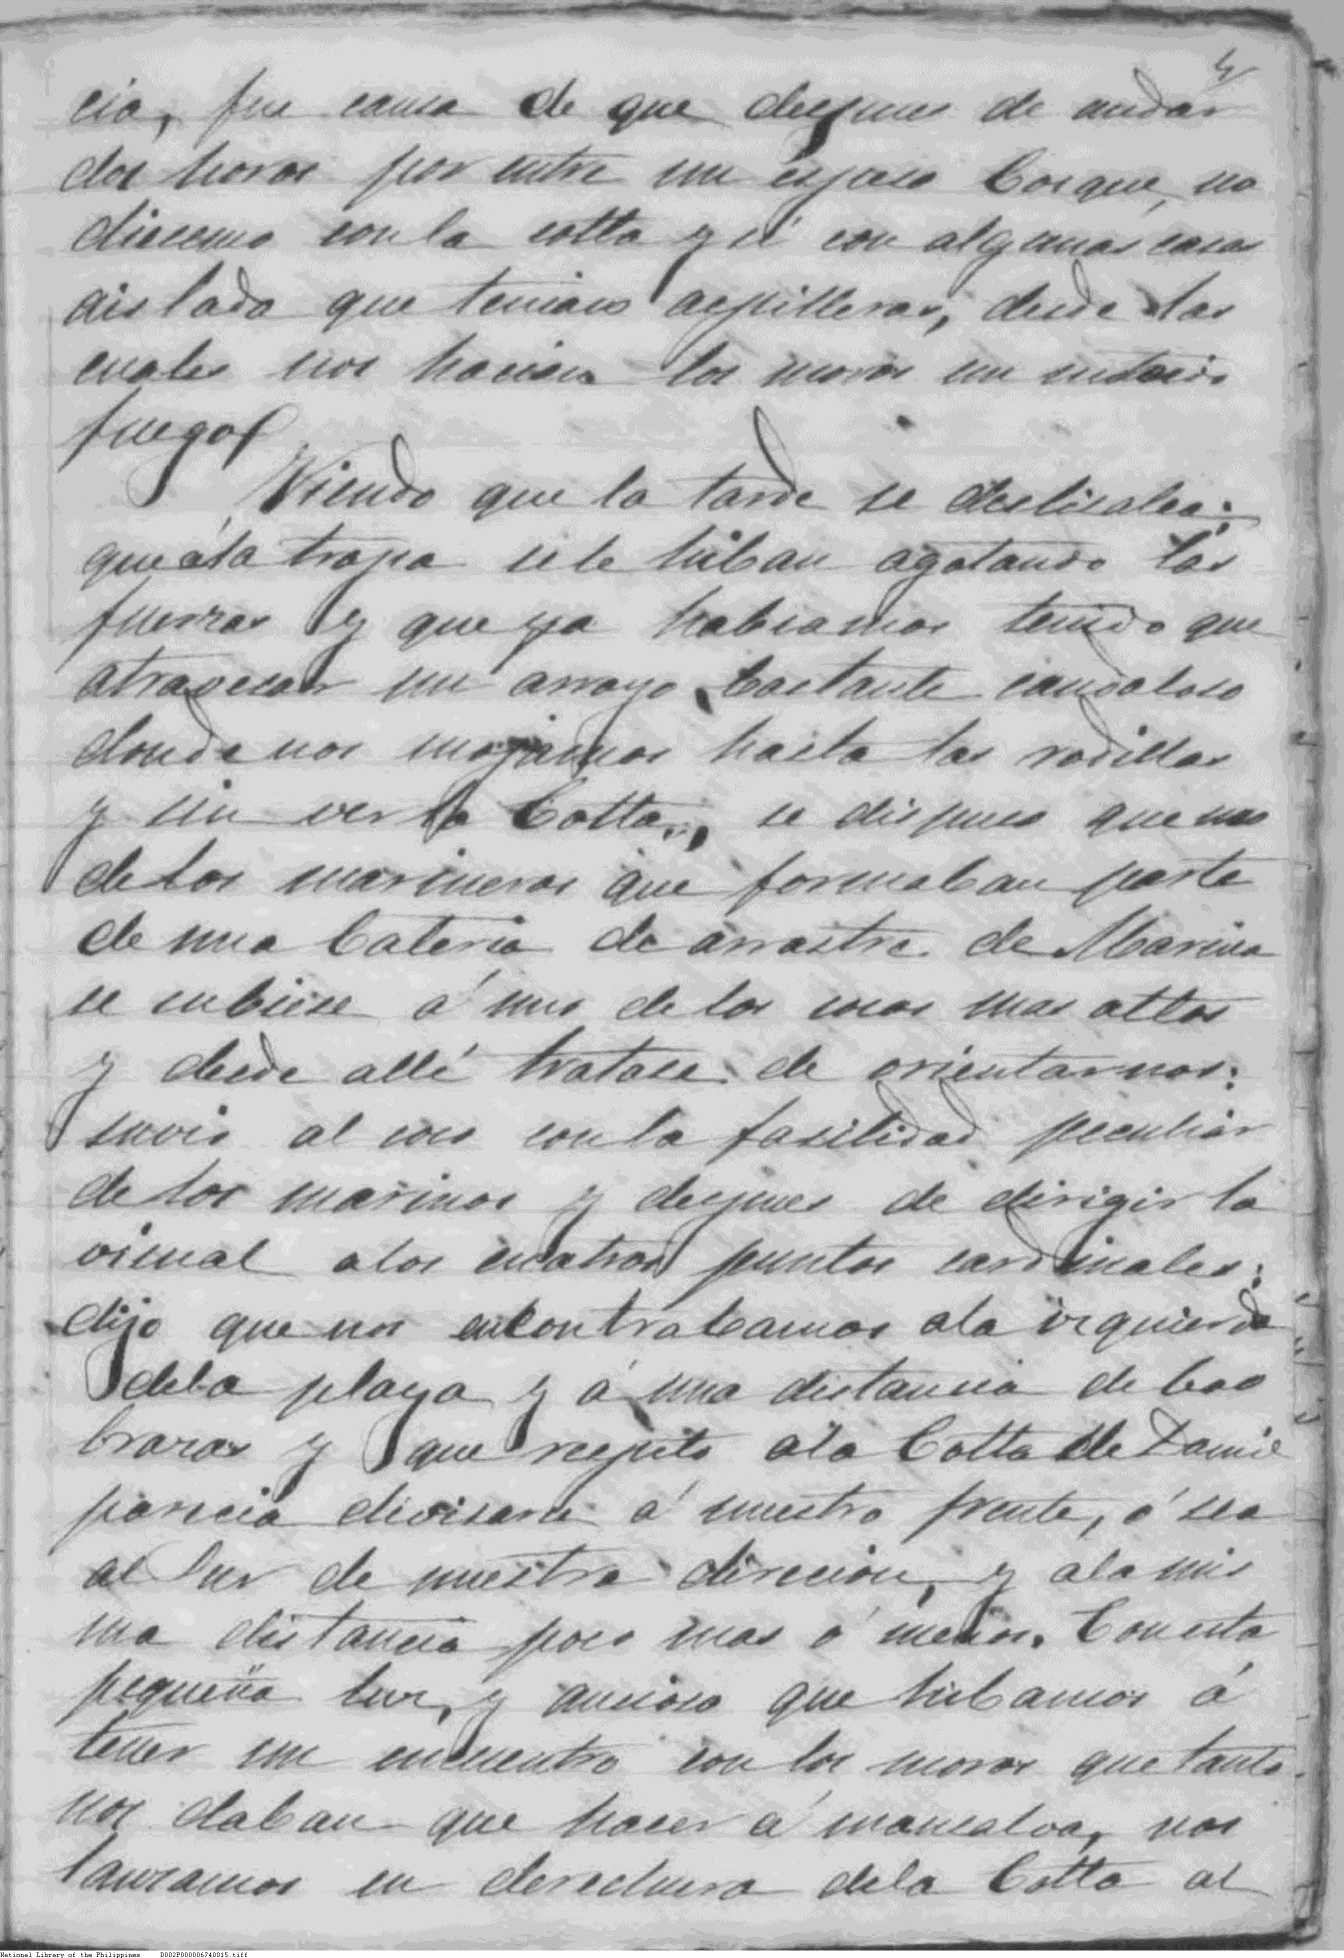 4
cia, fue causa de que despues de andar
dos horas por entre un espeso bosque, no
diesemo con la cotta y si con algunas casas
aislada que tenian aspilleras, desde las
cuales nos hacian los moros un nutrido
fuego
Viendo que la tarde se deslisaba;
que á la tropa se le hiban agotando las
fuerzas y que ya habiamos tenido que
atravesar un arroyo bastante caudaloso
donde nos mojamos hasta las rodillas
y sin ver la Cotta, se dispuso que uno
de los marineros que formaban parte
de una bateria de arrastre de Marina
se subiese á uno de los cocos mas altos
y desde allí tratase de orientarnos:
suvió al coco con la fasilidad peculiar
de los marinos y despues de dirigir la
visual a los cuatros puntos cardinales;
dijo que nos encontrabamos a la izquierda
de la playa y á una distancia de 600
brazas y que respeto a la Cotta de
parecia divisarse á nuestro frente, ó sea
al Sur de nuestra direcion, y a la mis
ma distancia poco mas ó menos. Con esta
pequeña luz, y ancioso que hibamos á
tener un encuentro con los moros que tanto
nos daban que hacer á mansalva, nos
lanzamos en derechura de la Cotta al
National Library of the Philippines D002P000006740015.tiff